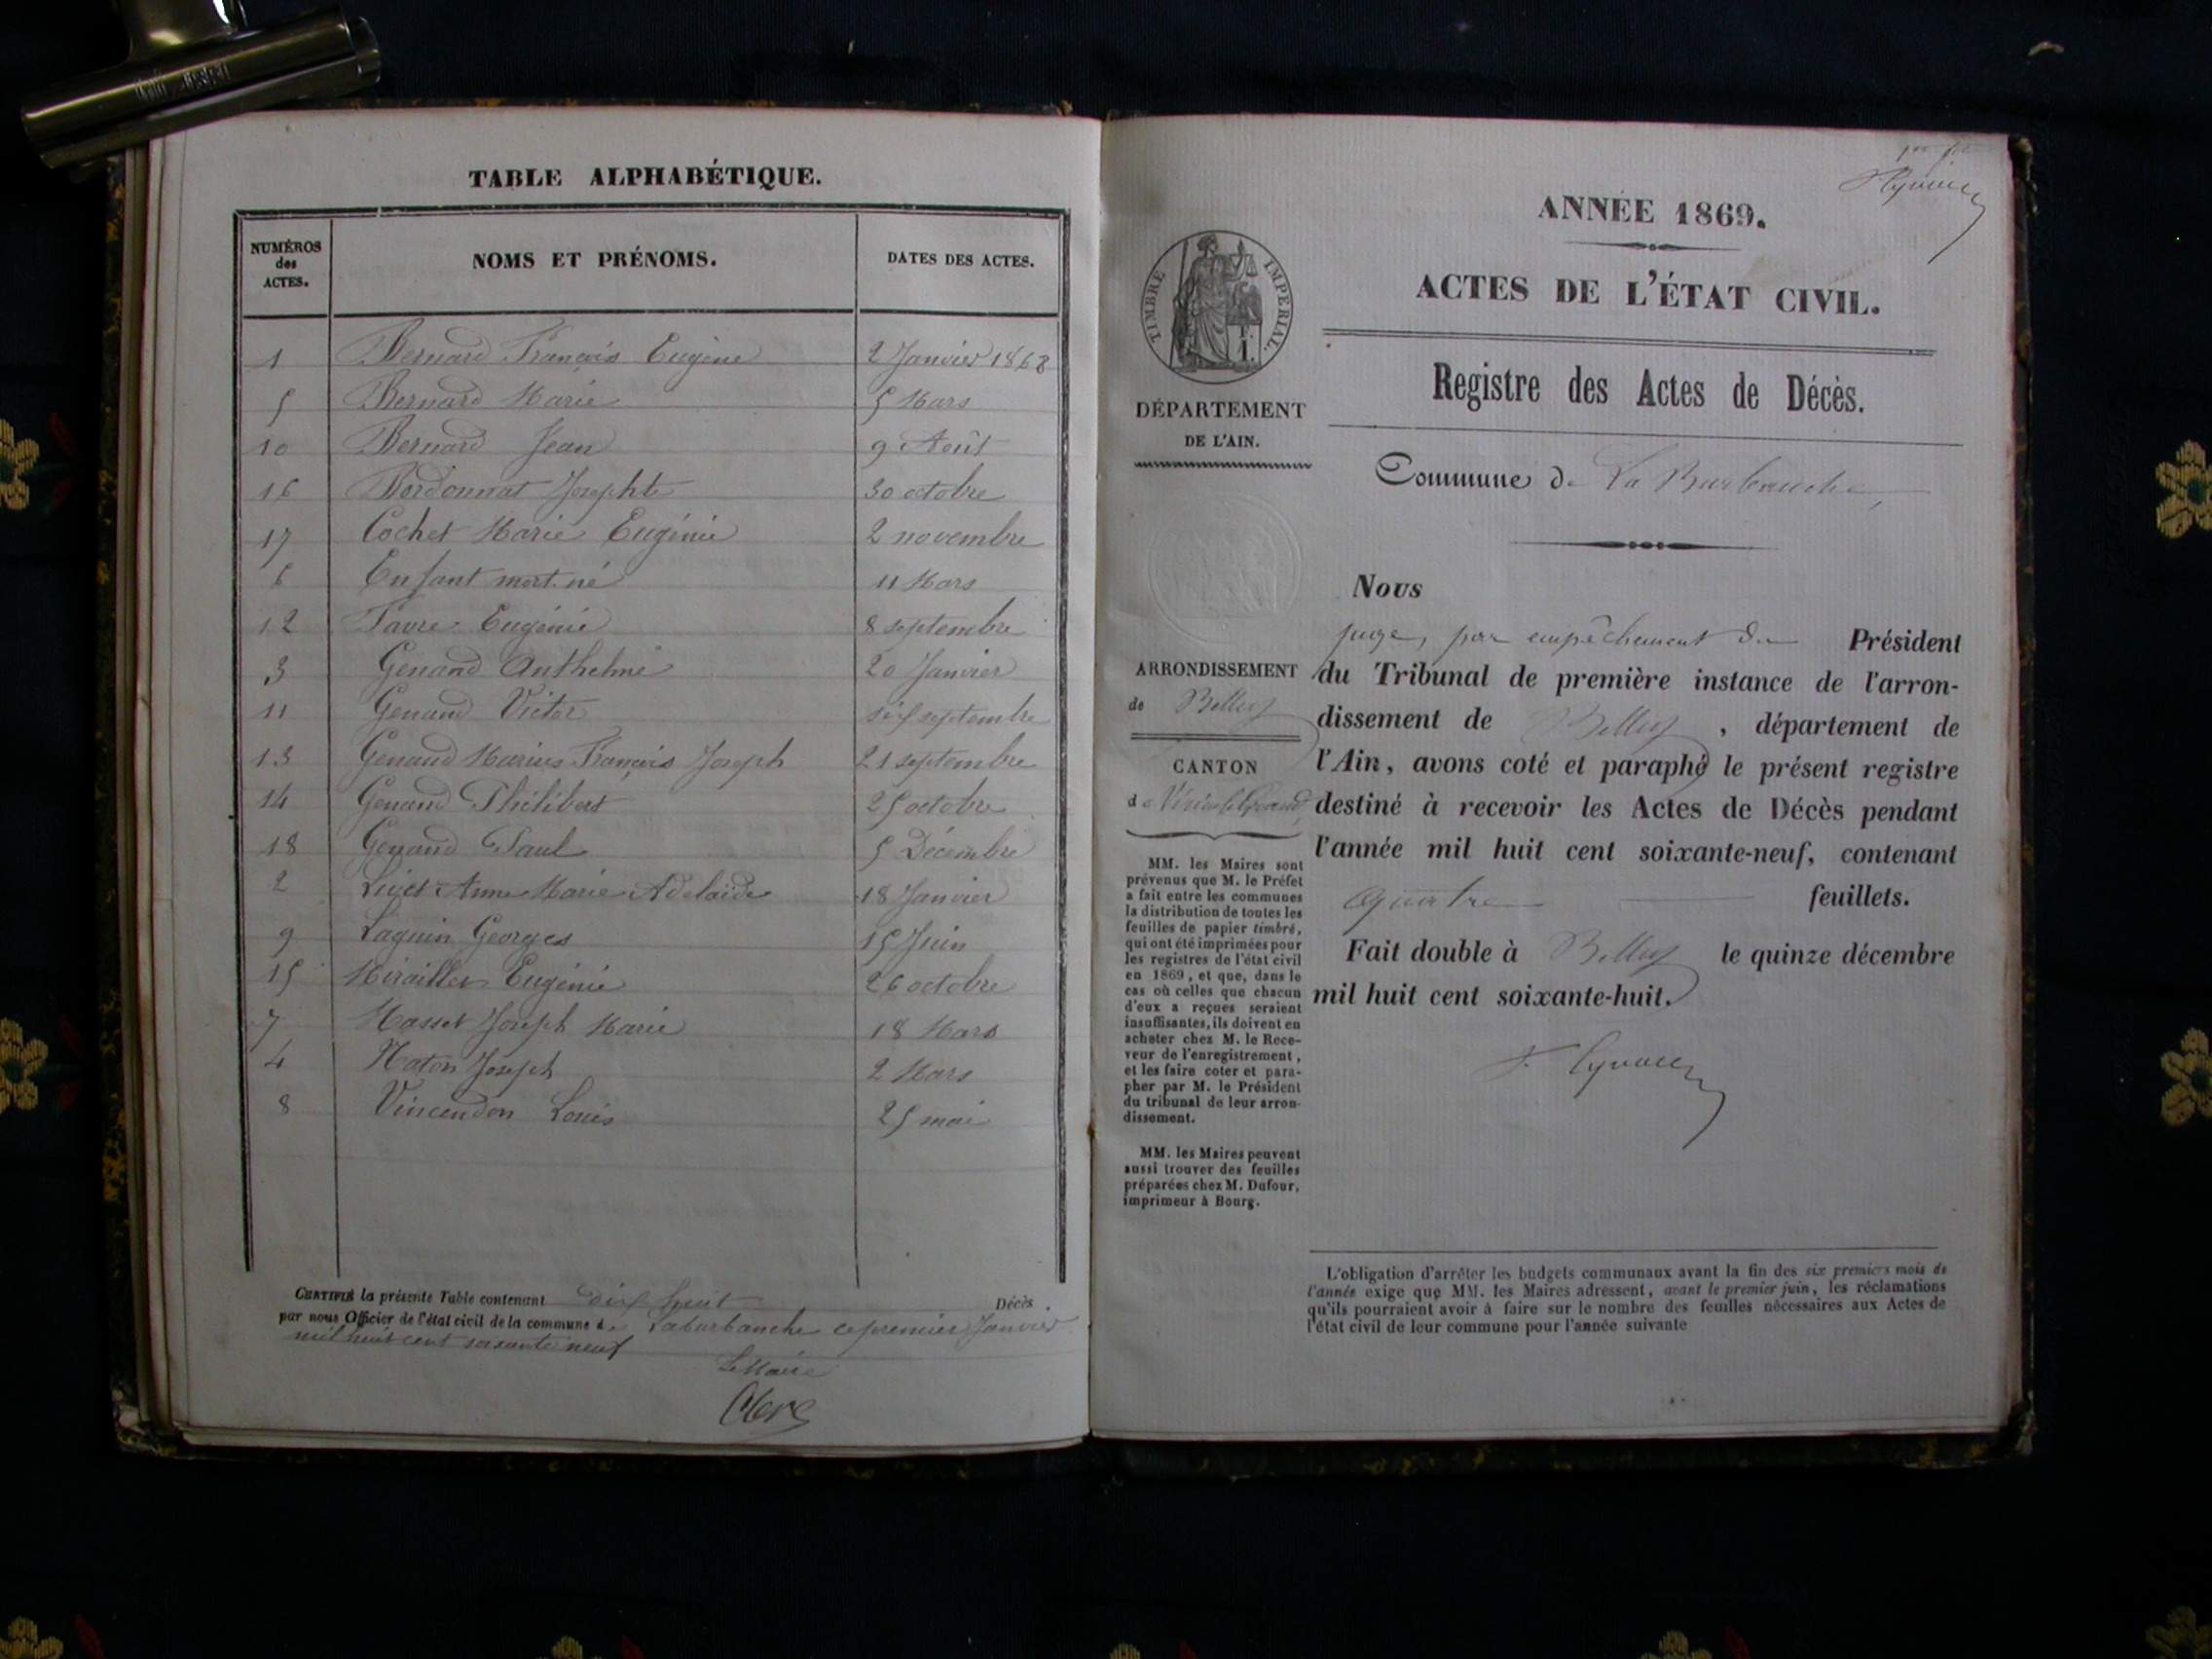 TABLE ALPHABÉTIQUE.
NUMÉROS des ACTES. NOMS ET PRÉNOMS. DATES DES ACTES.
1 Bernard François Eugène 2 Janvier 1868
5 Bernard Marie 5 Mars
10 Bernard Jean 9 Août
16 Bordonnat Josephte 30 octobre
17 Cochet Marie Eugénie 2 novembre
6 Enfant mort né 11 Mars
12 Favre Eugénie 8 septembre
3 Genand Anthelme 20 Janvier
11 Genand Victor six septembre
13 Genand Marius François Joseph 21 septembre
14 Genand Philibert 25 octobre
18 Genand Paul 5 Décembre
2 Liget Anne Marie Adelaïde 18 Janvier
9 Laguin Georges 15 Juin
15 Miraillet Eugénie 26 octobre
7 Masset Joseph Marie 18 Mars
4 Naton Joseph 2 Mars
8 Vincendon Louis 25 mai
CERTIFIÉ la présente Table contenant dix huit Décès
par nous Officier de l'état civil de la commune de Laburbanche ce premier Janvier
mil huit cent soixante neuf
Le Maire
Clerc
ANNÉE 1869.
ACTES DE L'ÉTAT CIVIL.
Registre des Actes de Décès.
TIMBRE IMPERIAL.
DÉPARTEMENT
DE L'AIN.
Commune de La Burbanche
Nous
juge, par empêchement du Président
du Tribunal de première instance de l'arron-
dissement de Belley, département de
l'Ain, avons coté et paraphé le présent registre
destiné à recevoir les Actes de Décès pendant
l'année mil huit cent soixante-neuf, contenant
quatre feuillets.
Fait double à Belley le quinze décembre
mil huit cent soixante-huit.
ARRONDISSEMENT
de Belley
CANTON
de Virieu le Grand
MM. les Maires sont
prévenus que M. le Préfet
a fait entre les communes
la distribution de toutes les
feuilles de papier timbré,
qui ont été imprimées pour
les registres de l'état civil
en 1869, et que, dans le
cas où celles que chacun
d'eux a reçues seraient
insuffisantes, ils doivent en
acheter chez M. le Rece-
veur de l'enregistrement,
et les faire coter et para-
pher par M. le Président
du tribunal de leur arron-
dissement.
MM. les Maires peuvent
aussi trouver des feuilles
préparées chez M. Dufour,
imprimeur à Bourg.
L'obligation d'arrêter les budgets communaux avant la fin des six premiers mois de
l'année exige que MM. les Maires adressent, avant le premier juin, les réclamations
qu'ils pourraient avoir à faire sur le nombre des feuilles nécessaires aux Actes de
l'état civil de leur commune pour l'année suivante